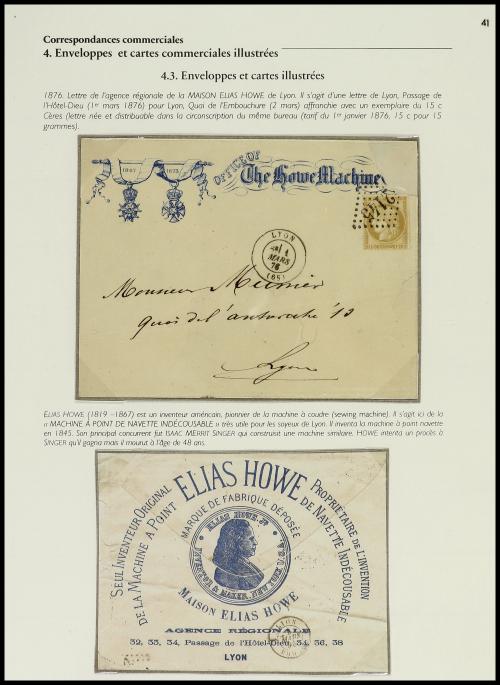 41
Correspondances commerciales
4. Enveloppes et cartes commerciales illustrées
4.3. Enveloppes et cartes illustrées
1876. Lettre de l'agence régionale de la MAISON ELIAS HOWE de Lyon. Il s'agit d'une lettre de Lyon, Passage de
l'Hôtel-Dieu (1er mars 1876) pour Lyon, Quai de l'Embouchure (2 mars) affranchie avec un exemplaire du 15 c
Cères (lettre née et distribuable dans la circonscription du même bureau (tarif du 1er janvier 1876, 15 c pour 15
grammes).
1867
OFFICE OF
The Howe Machine
2145
LYON
1
MARS
76
(68)
Monsieur Meunier
quai de l'
Lyon
ELIAS HOWE (1819 –1867) est un inventeur américain, pionnier de la machine à coudre (sewing machine). Il s'agit ici de la
« MACHINE À POINT DE NAVETTE INDÉCOUSABLE » très utile pour les soyeux de Lyon. Il inventa la machine à point navette
en 1845. Son principal concurrent fut ISAAC MERRIT SINGER qui construisit une machine similaire. HOWE intenta un procès à
SINGER qu'il gagna mais il mourut à l'âge de 48 ans.
SEUL INVENTEUR ORIGINAL
DE LA MACHINE A POINT
ELIAS HOWE
MARQUE DE FABRIQUE DÉPOSÉE
PROPRIETAIRE DE L'INVENTION
DE NAVETTE INDÉCOUSABLE
ELIAS HOWE. JR
INVENTOR & MAKER. NEW YORK U.S.A.
MAISON ELIAS HOWE
AGENCE RÉGIONALE
32, 33, 34, Passage de l'Hôtel-Dieu, 34, 36, 38
LYON
LYON